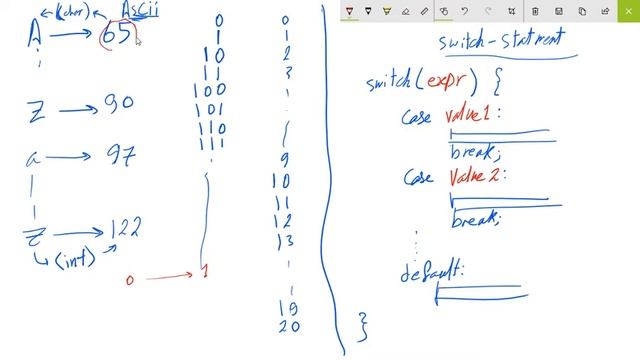 (char) ASCII
A → 65
Z → 90
a → 97
z → 122
(int)
0 → 1
0
1
10
11
100
101
110
111
0
1
2
3
9
10
11
12
13
19
20
switch-statment
switch(expr) {
case value1:
break;
case value2:
break;
default:
}